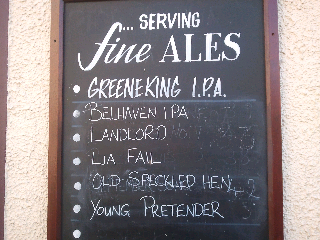 ... SERVING
fine ALES
GREENEKING I.P.A.
BELHAVEN IPA
LANDLORD
LIA FAIL
OLD SPECKLED HEN
YOUNG PRETENDER